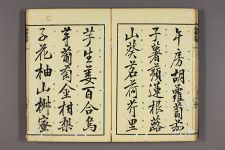 午房胡蘿蔔茄
子薯蕷蓮根蕗
山葵茗荷芹里
芋生姜百合烏
芋葡萄金柑梨
子花柚山椒蜜